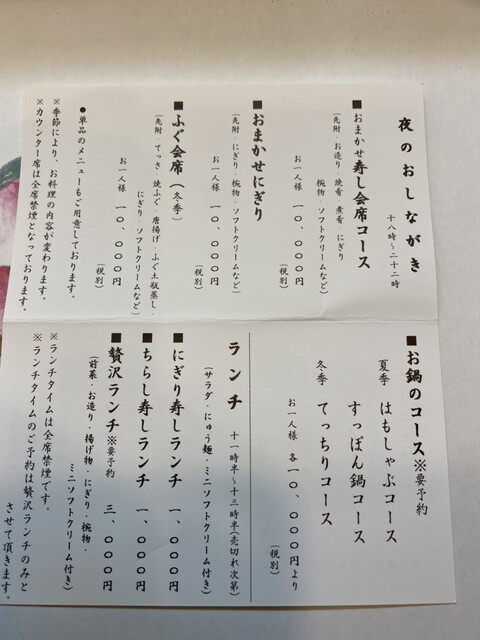 夜のおしながき
十八時～二十二時
■おまかせ寿し会席コース
（先附・お造り・焼肴・煮肴・にぎり
椀物・ソフトクリームなど）
お一人様　一〇、〇〇〇円
（税別）
■おまかせにぎり
（先附・にぎり・椀物・ソフトクリームなど）
お一人様　一〇、〇〇〇円
（税別）
■ふぐ会席（冬季）
（先附・てっさ・焼ふぐ・唐揚げ・ふぐ土瓶蒸し・
にぎり・ソフトクリームなど）
お一人様　一〇、〇〇〇円
（税別）
●単品のメニューもご用意しております。
※季節により、お料理の内容が変わります。
※カウンター席は全席禁煙となっております。
■お鍋のコース※要予約
夏季　はもしゃぶコース
すっぽん鍋コース
冬季　てっちりコース
お一人様　各一〇、〇〇〇円より
（税別）
ランチ　十一時半～十三時半（売切れ次第）
（サラダ・にゅう麺・ミニソフトクリーム付き）
■にぎり寿しランチ　一、〇〇〇円
■ちらし寿しランチ　一、〇〇〇円
■贅沢ランチ※要予約　三、〇〇〇円
（前菜・お造り・揚げ物・にぎり・椀物・
ミニソフトクリーム付き）
※ランチタイムは全席禁煙です。
※ランチタイムのご予約は贅沢ランチのみと
させて頂きます。